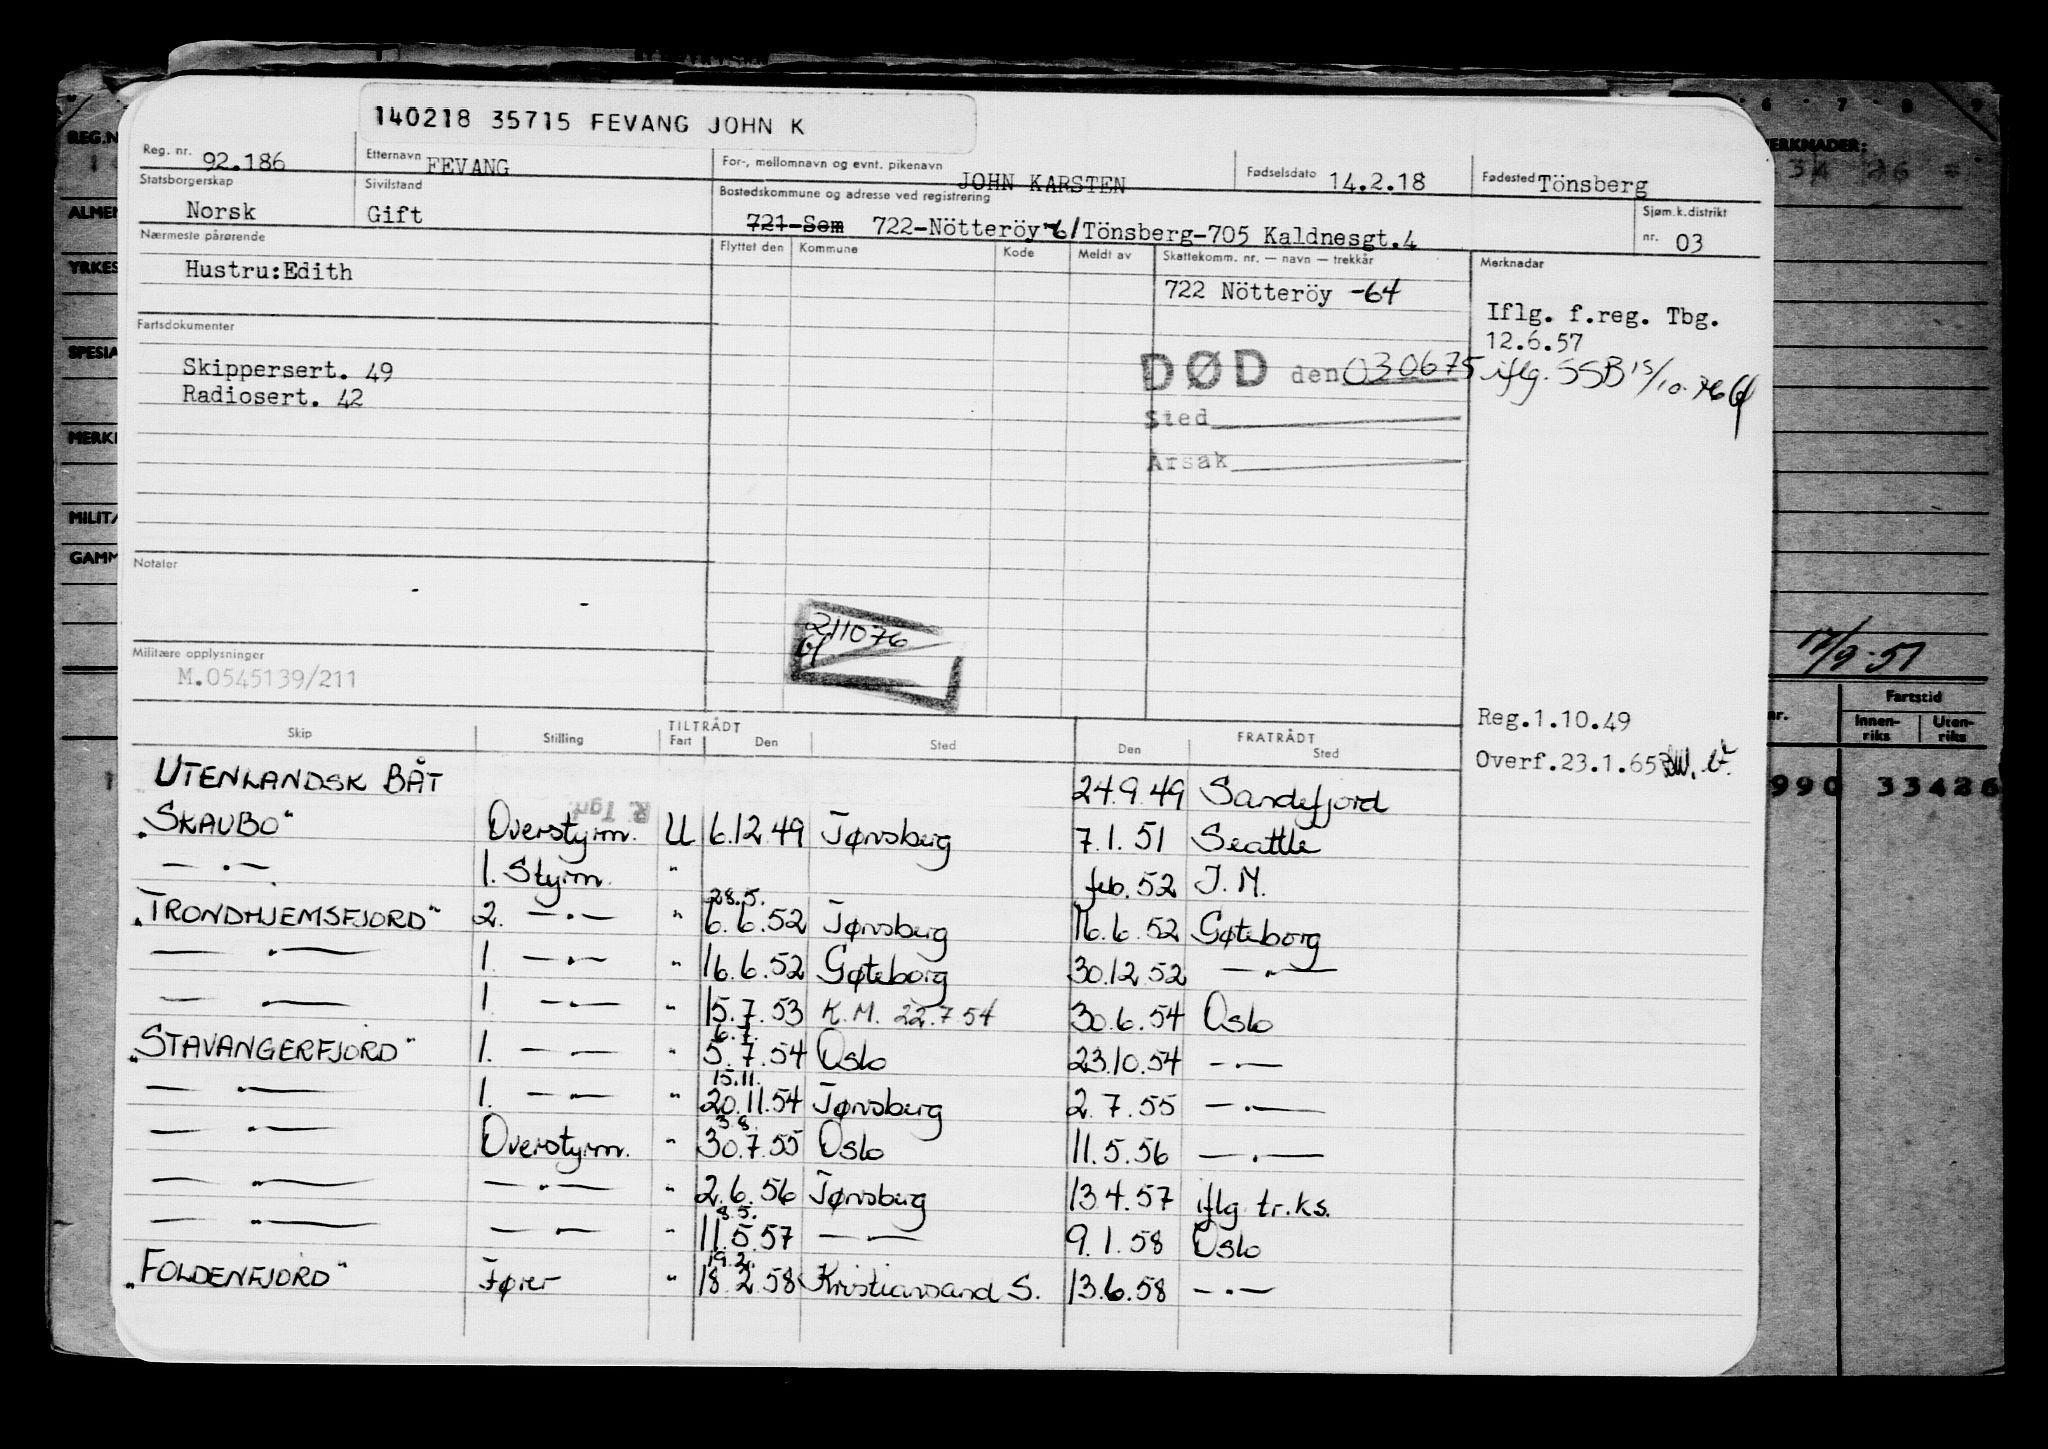 140218 35715 FEVANG JOHN K
Reg. nr. 92.186 Etternavn FEVANG For-, mellomnavn og evnt. pikenavn JOHN KARSTEN Fødselsdato 14.2.18 Fødested Tönsberg
Statsborgerskap Norsk Sivilstand Gift Bostedskommune og adresse ved registrering
721-Sem 722-Nötteröy Tönsberg-705 Kaldnesgt.4 Sjøm.k.distrikt nr. 03
Nærmeste pårørende Flyttet den Kommune Kode Meldt av Skattekomm. nr. — navn — trekkår Merknader
Hustru:Edith
722 Nötteröy -64
Iflg. f.reg. Tbg.
12.6.57
Fartsdokumenter
Skippersert. 49
Radiosert. 42
DØD den 030675 iflg. SSB 15/10-76
Sted
Årsak
Notater
211076
Militære opplysninger
M.0545139/211
Reg.1.10.49
Overf.23.1.65
Skip Stilling TILTRÅDT Fart Den Sted FRATRÅDT Den Sted
R. Tgr.
UTENLANDSK BÅT 24.9.49 Sandefjord
"SKAUBO" Overstyrm. U 6.12.49 Tønsberg 7.1.51 Seattle
— · — 1. Styrm. " feb. 52 I.M.
28.5.
"TRONDHJEMSFJORD" 2. — · — " 6.6.52 Tønsberg 16.6.52 Gøteborg
— · — 1. — · — " 16.6.52 Gøteborg 30.12.52 — · —
— · — 1. — · — " 15.7.53 K.M. 22.7.54 30.6.54 Oslo
6.7.
"STAVANGERFJORD" 1. — · — " 5.7.54 Oslo 23.10.54 — · —
15.11.
— · — 1. — · — " 20.11.54 Tønsberg 2.7.55 — · —
3.8.
— · — Overstyrm. " 30.7.55 Oslo 11.5.56 — · —
— · — — · — " 2.6.56 Tønsberg 13.4.57 iflg tr.ks.
8.5.
— · — — · — " 11.5.57 — · — 9.1.58 Oslo
19.2.
"FOLDENFJORD" Fører " 18.2.58 Kristiansand S. 13.6.58 — · —
REG.N
ALMEN
YRKES
SPESIA
MERK
MILITÆ
GAMM
6 7 8 9
ERKNADER:
17/9-51
nr. Fartstid
Innen-riks Uten-riks
990 33426